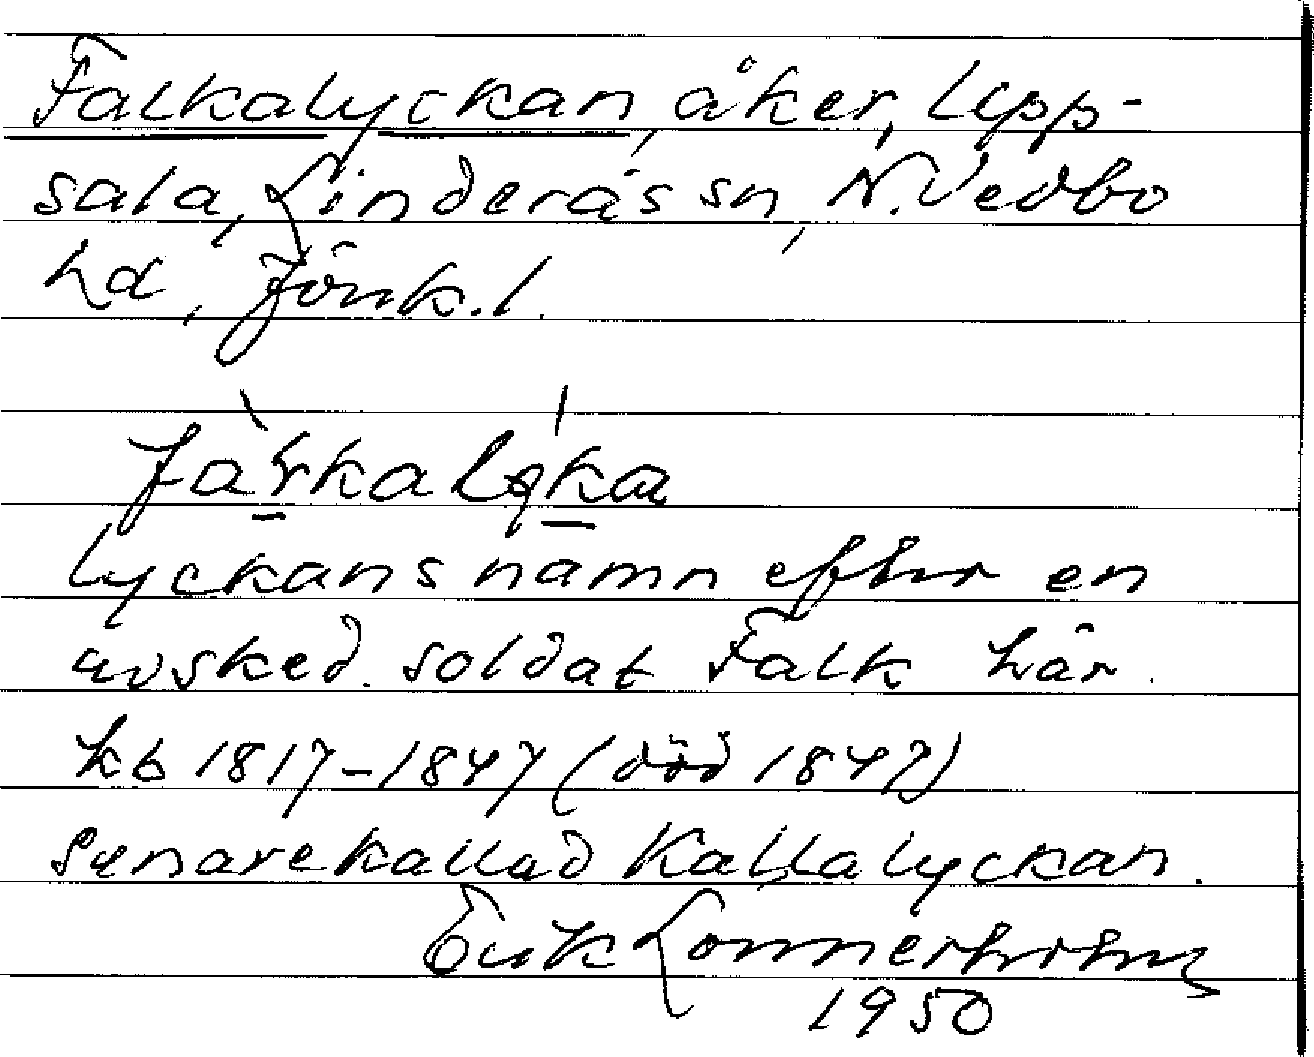 Falkalyckan, åker, Upp-
sala, Linderås sn, N. Vedbo
hd, Jönk. l.
lyckans namn efter en
avsked. soldat Falk här.
kb 1817-1847 (död 1847)
Senare kallad Kallalyckan.
Erik Lönnerholm
1950